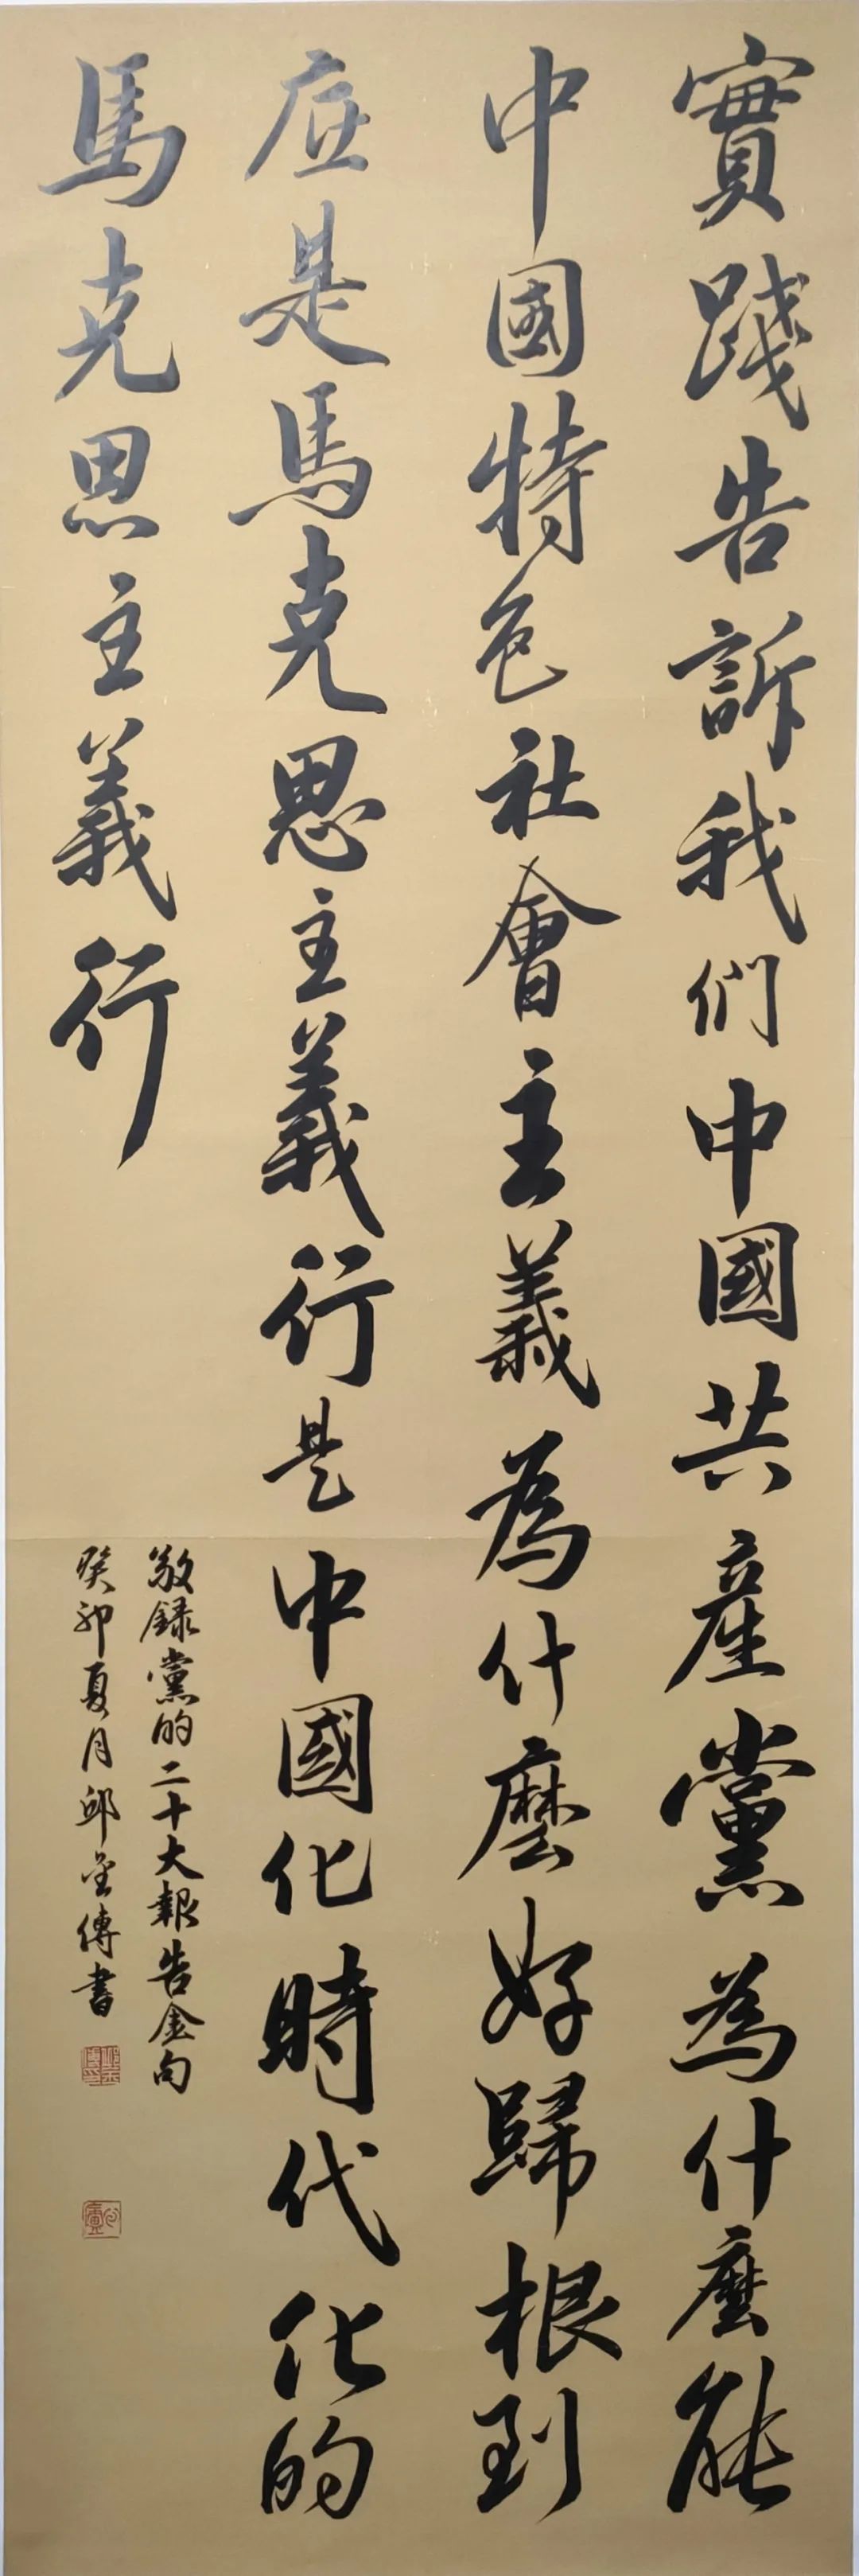 實踐告訴我們中國共產黨為什麼能
中國特色社會主義為什麼好歸根到
底是馬克思主義行是中國化時代化的
馬克思主義行
敬録黨的二十大報告金句
癸卯夏月邱金傳書